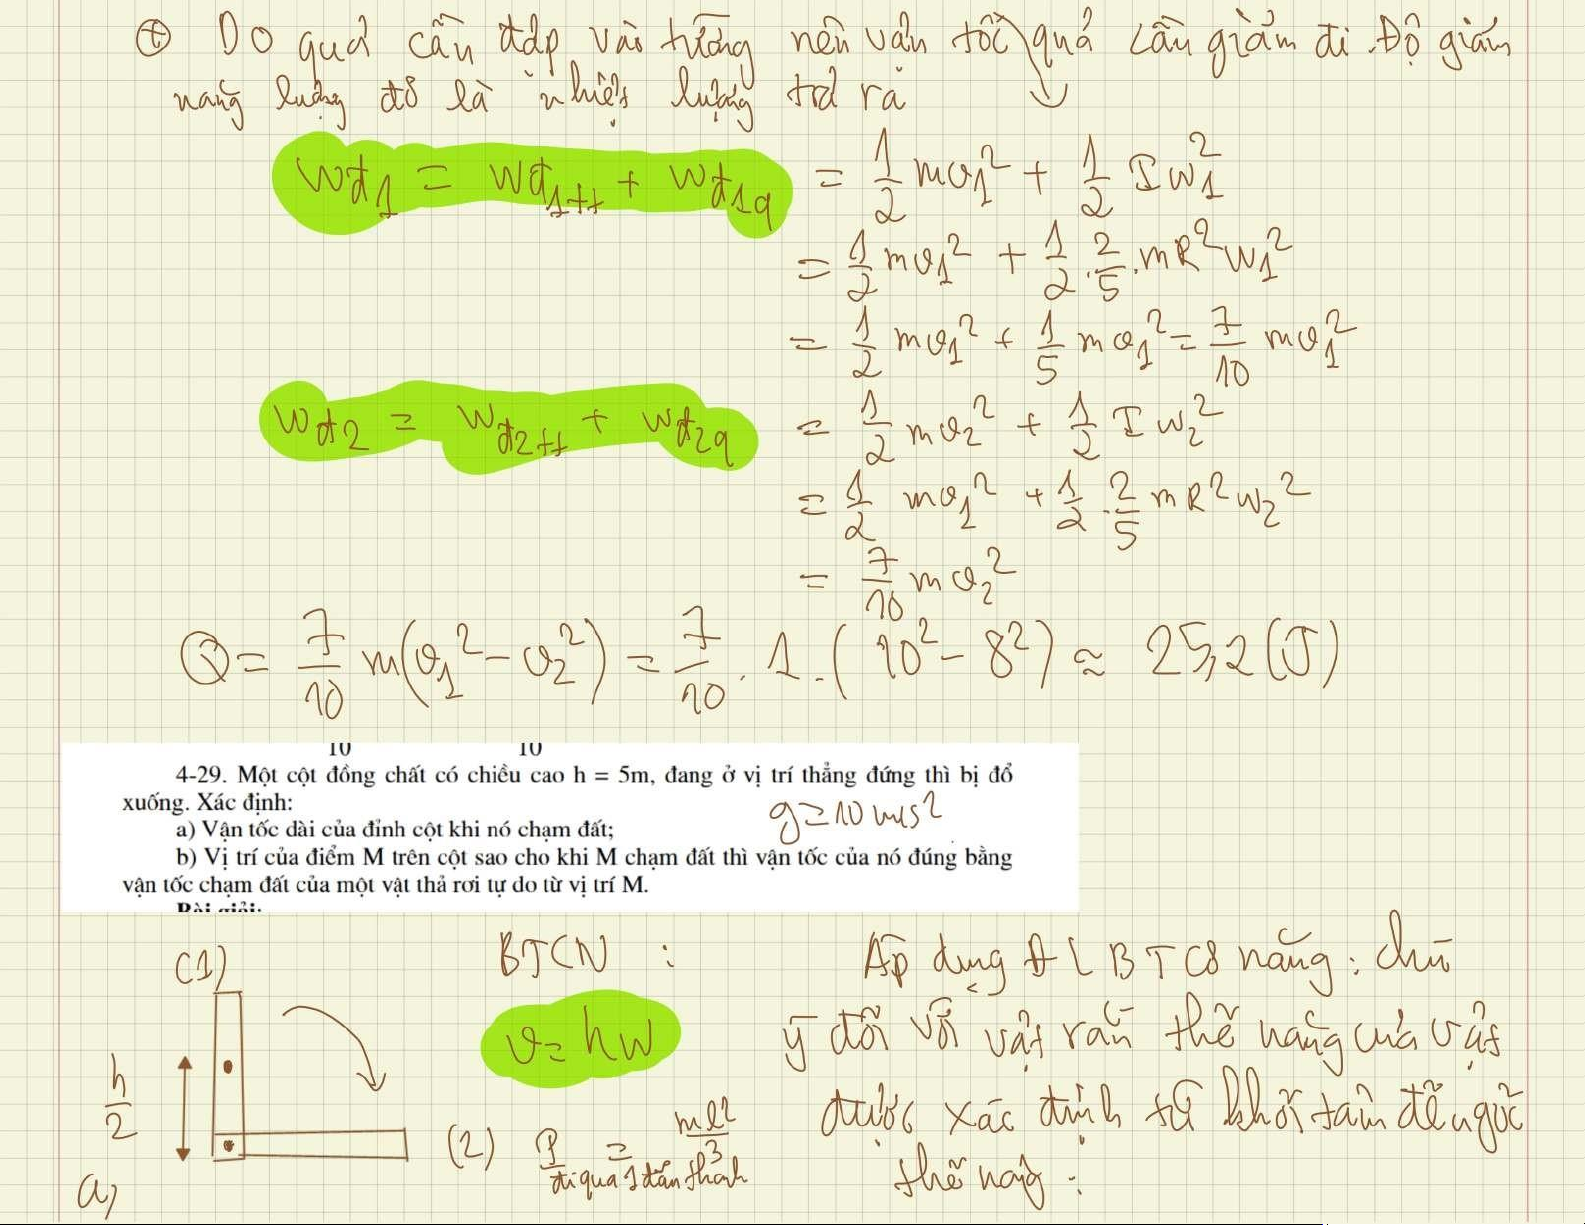 ⊕ Do quả cầu đập vào tường nên vận tốc quả cầu giảm đi. Độ giảm
năng lượng đó là nhiệt lượng toả ra
Wđ1 = Wđ1tt + Wđ1q = 1/2 mv₁² + 1/2 Iw₁²
= 1/2 mv₁² + 1/2 . 2/5 . mR²w₁²
= 1/2 mv₁² + 1/5 mv₁² = 7/10 mv₁²
Wđ2 = Wđ2tt + Wđ2q = 1/2 mv₂² + 1/2 Iw₂²
= 1/2 mv₁² + 1/2 . 2/5 mR²w₂²
= 7/10 mv₂²
Q = 7/10 m(v₁² - v₂²) = 7/10 . 1 . (10² - 8²) ≈ 25,2 (J)
10 10
4-29. Một cột đồng chất có chiều cao h = 5m, đang ở vị trí thẳng đứng thì bị đổ
xuống. Xác định:
g = 10 m/s²
a) Vận tốc dài của đỉnh cột khi nó chạm đất;
b) Vị trí của điểm M trên cột sao cho khi M chạm đất thì vận tốc của nó đúng bằng
vận tốc chạm đất của một vật thả rơi tự do từ vị trí M.
Bài giải:
(1)
BTCN :
Áp dụng ĐLBT Cơ năng: chú
v = hw
ý đối với vật rắn thế năng của vật
h/2
(2)
I đi qua 1 đầu thanh = ml²/3
được xác định từ khối tâm đến gốc
thế năng :
a)